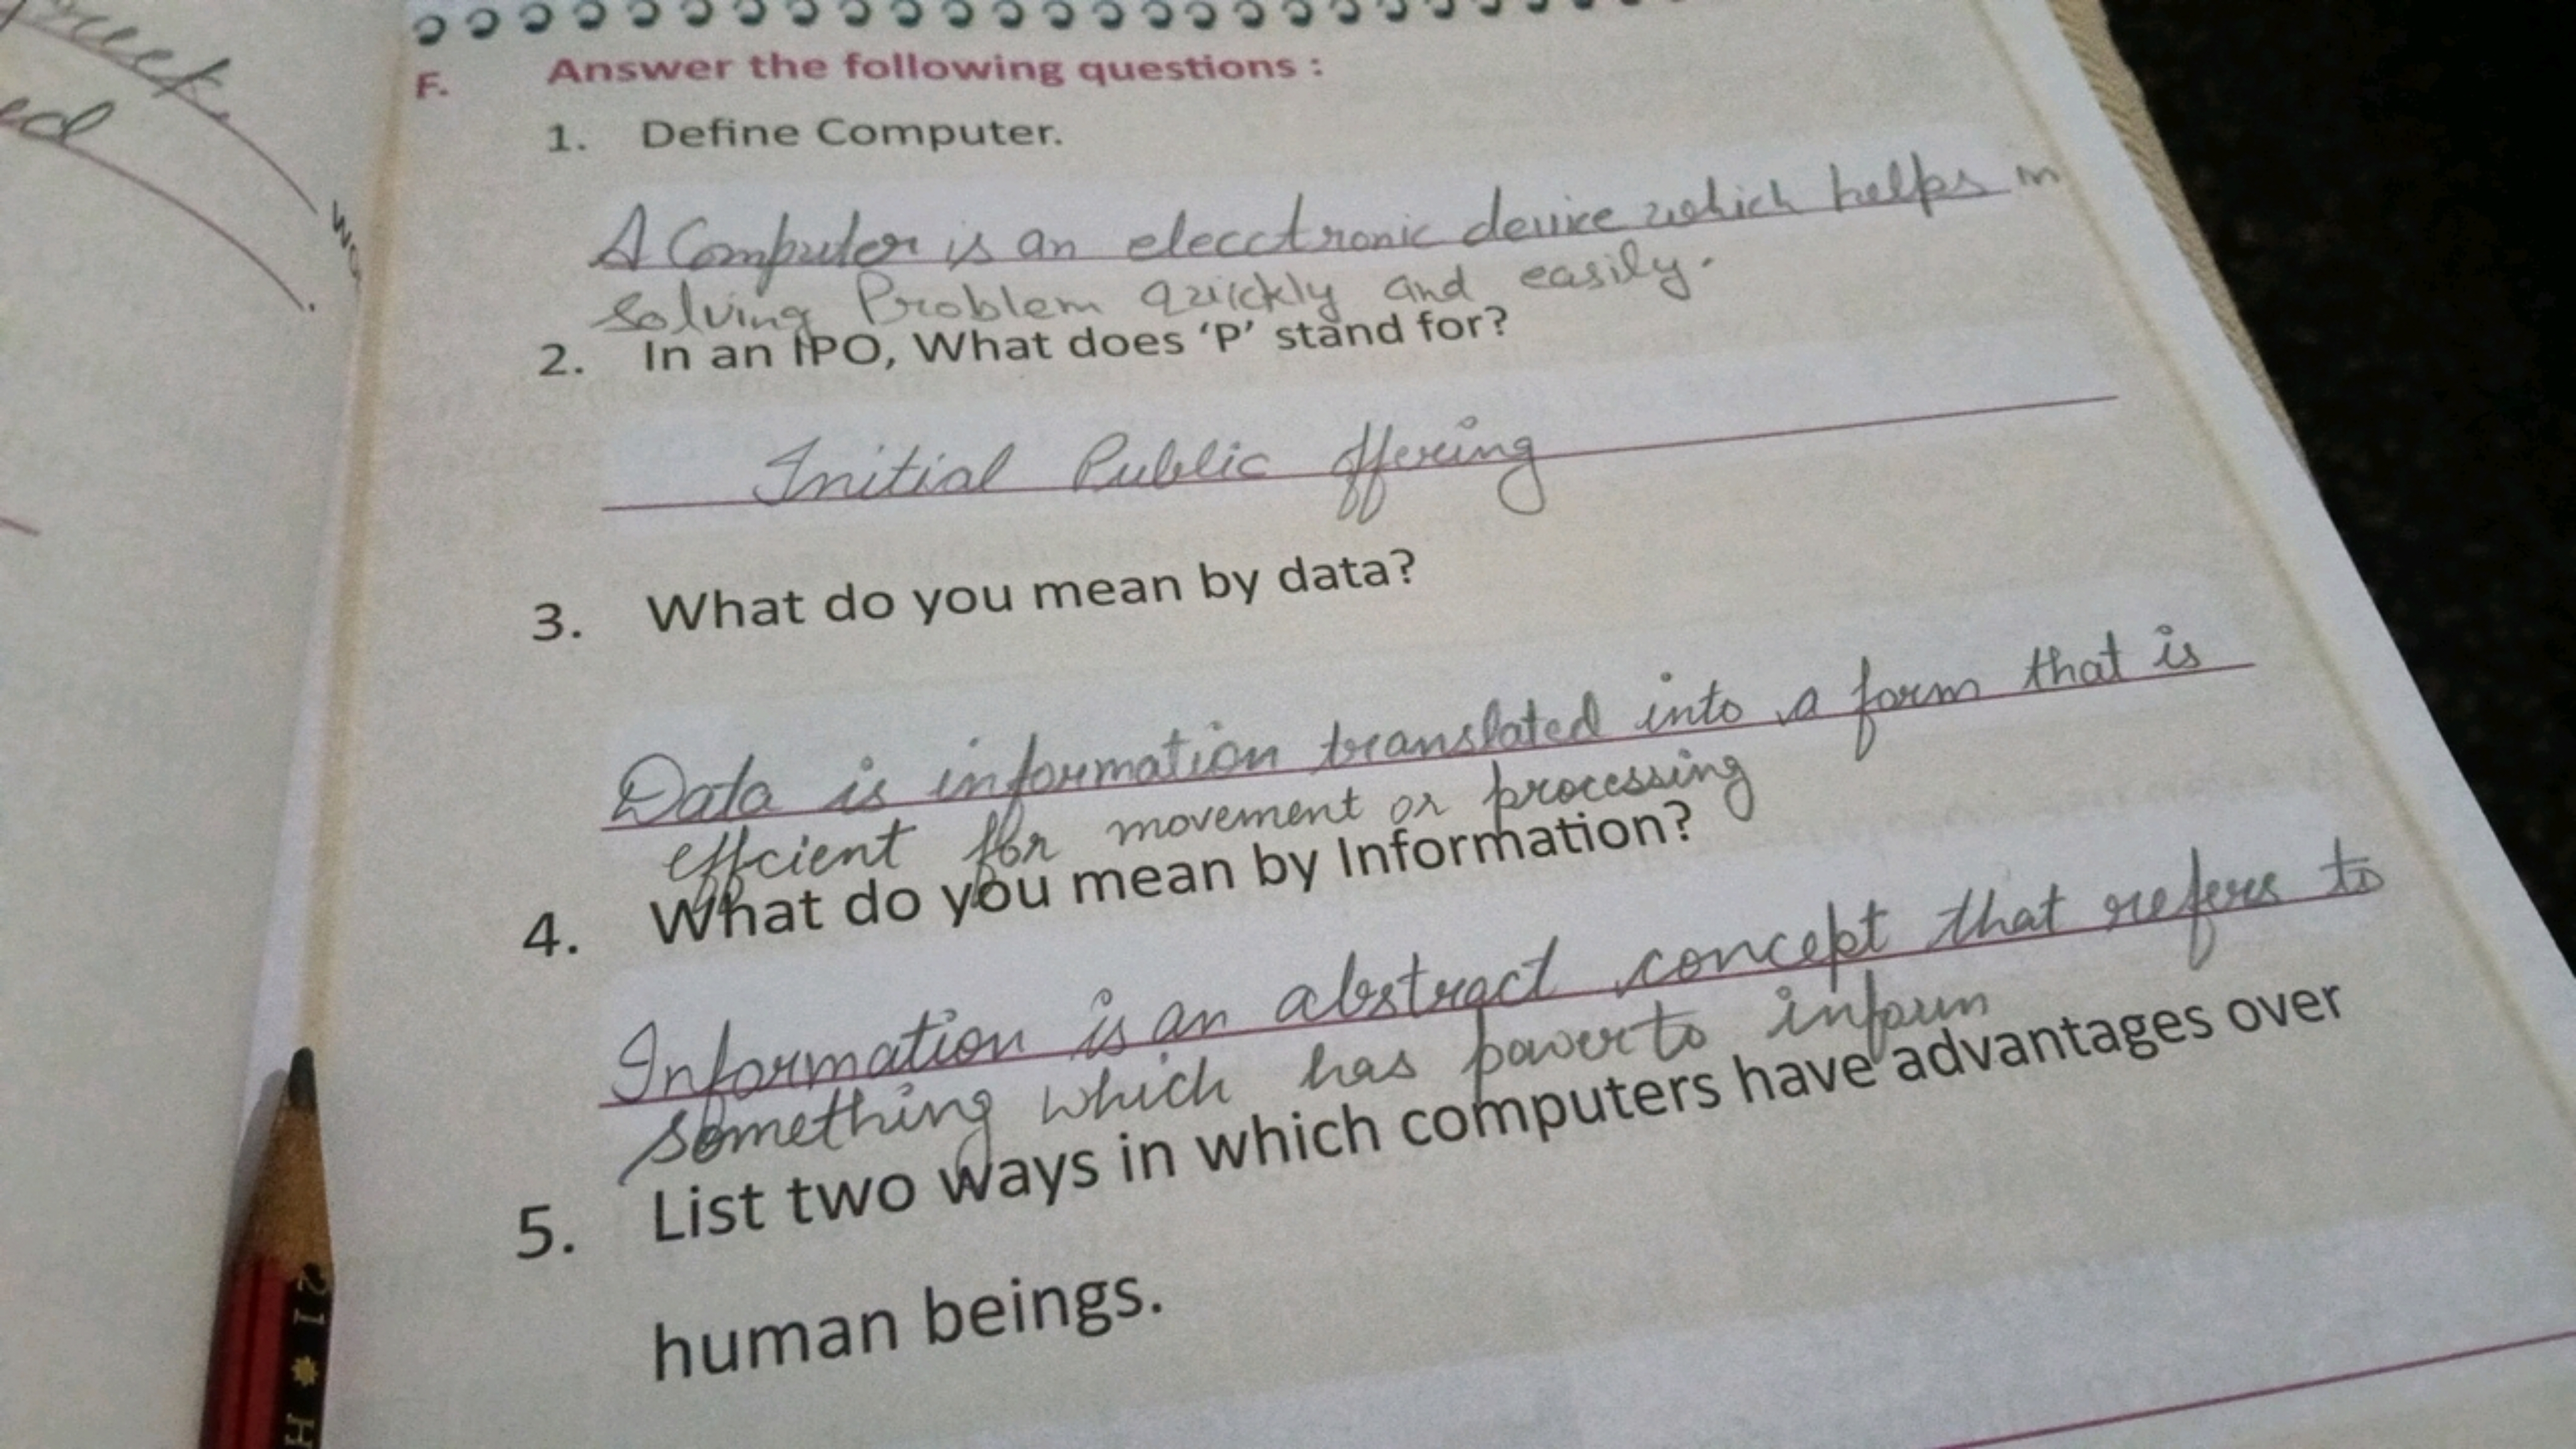 ed
F. Answer the following questions :
1. Define Computer.
A Computer is an elecctronic device which helps in
solving Problem quickly and easily.
2. In an IPO, What does 'P' stand for?
Initial Public Offering
3. What do you mean by data?
Data is information translated into a form that is
effcient for movement or processing
4. What do you mean by Information?
Information is an abstract concept that refers to
something which has power to inform
5. List two ways in which computers have advantages over
human beings.
21 H